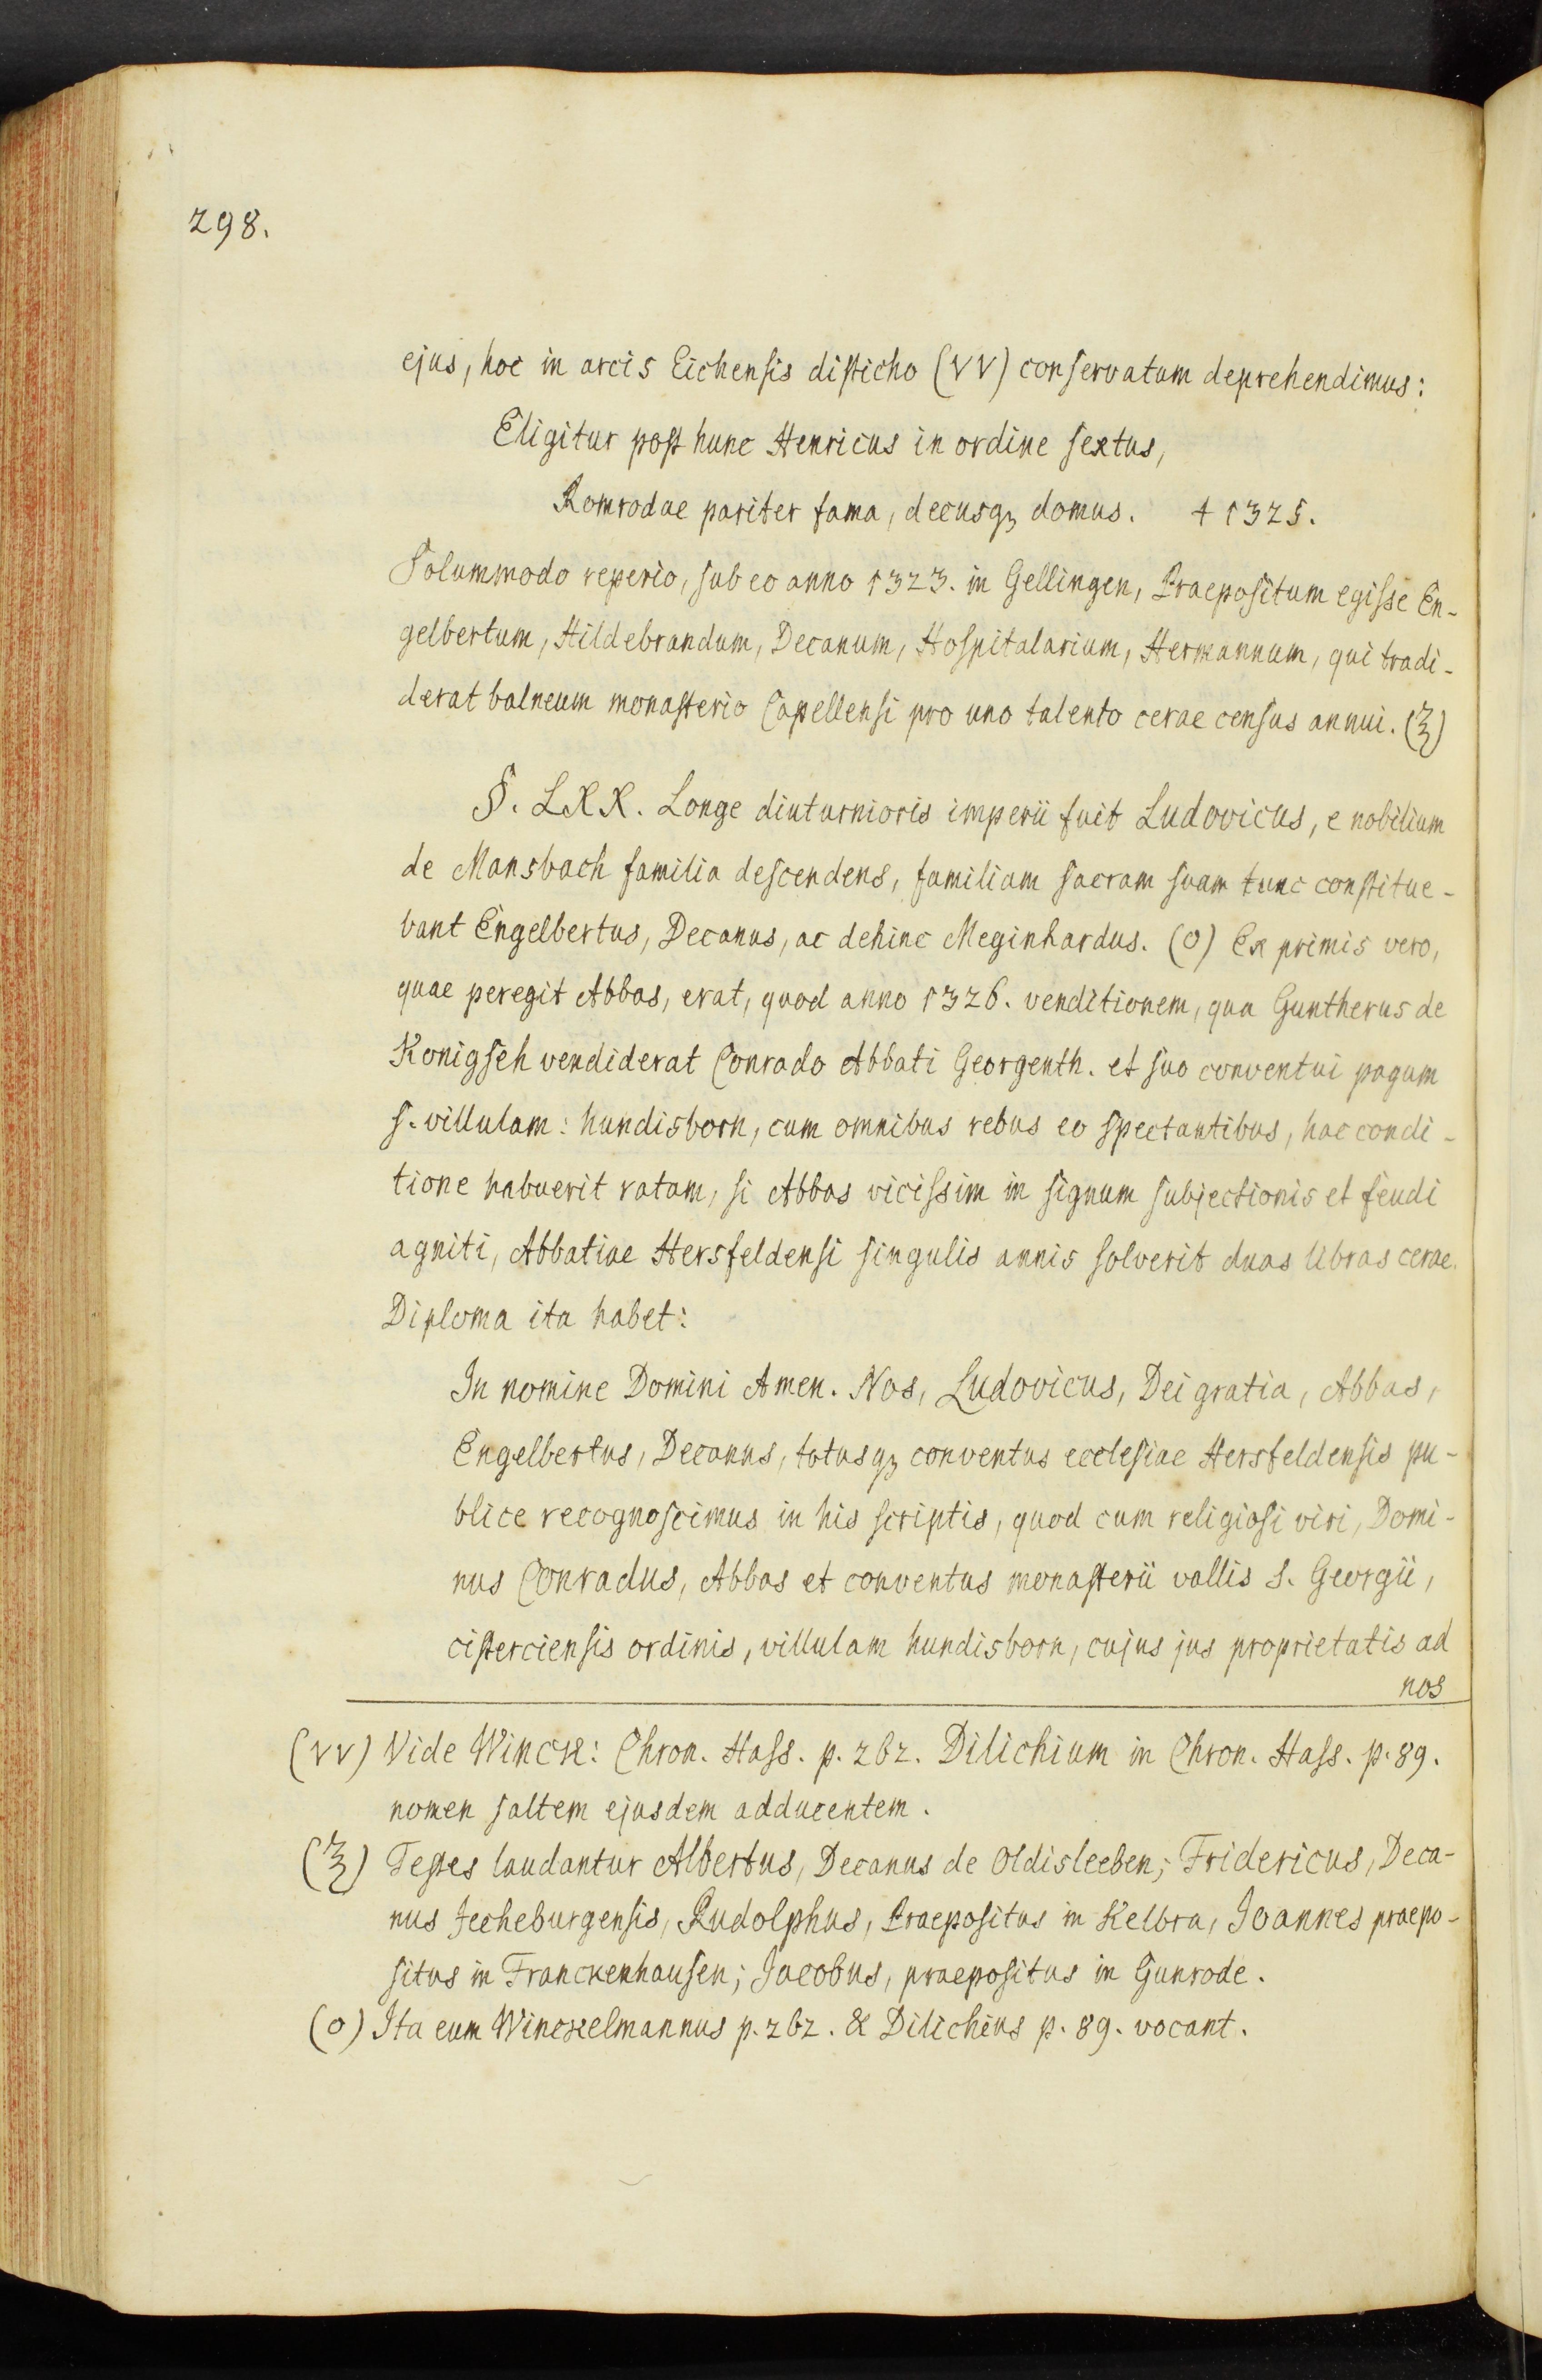 298.
ejus, hoc in arcis Eichensis disticho (vv) conservatum deprehendimus:
Eligitur post hunc Henricus in ordine sextus,
Romrodae pariter fama, decusqꝫ domus. † 1325.
Solummodo reperio, sub eo anno 1323. in Gellingen, Praepositum egisse En-
gelbertum, Hildebrandum, Decanum, Hospitalarium, Hermannum, qui tradi-
derat balneum monasterio Capellensi pro uno talento cerae census annui. (ʒ)
§. LXX. Longe diuturnioris imperii fuit Ludovicus, e nobilium
de Mansbach familia descendens, familiam sacram suam tunc constitue-
bant Engelbertus, Decanus, ac dehinc Meginhardus. (o) Ex primis vero,
quae peregit Abbas, erat, quod anno 1326. venditionem, qua Guntherus de
Konigseh vendiderat Conrado Abbati Georgenth. et suo conventui pagum
s. villulam: hundisborn, cum omnibus rebus eo spectantibus, hac condi-
tione habuerit ratam, si Abbas vicissim in signum subjectionis et feudi
agniti, Abbatiae Hersfeldensi singulis annis solverit duas libras cerae.
Diploma ita habet:
In nomine Domini Amen. Nos, Ludovicus, Dei gratia, Abbas,
Engelbertus, Decanus, totusqꝫ conventus ecclesiae Hersfeldensis pu-
blice recognoscimus in his scriptis, quod cum religiosi viri, Domi-
nus Conradus, Abbas et conventus monasterii vallis S. Georgii,
cisterciensis ordinis, villulam hundisborn, cujus jus proprietatis ad
nos
(vv) Vide Winck: Chron. Hass. p. 262. Dilichium in Chron. Hass. p. 89.
nomen saltem ejusdem adducentem.
(ʒ) Testes laudantur Albertus, Decanus de Oldisleeben; Fridericus, Deca-
nus Jecheburgensis, Rudolphus, Praepositus in Kelbra, Joannes praepo-
situs in Franckenhausen; Jacobus, praepositus in Gunrode.
(o) Ita eum Winckelmannus p. 262. & Dilichius p. 89. vocant.